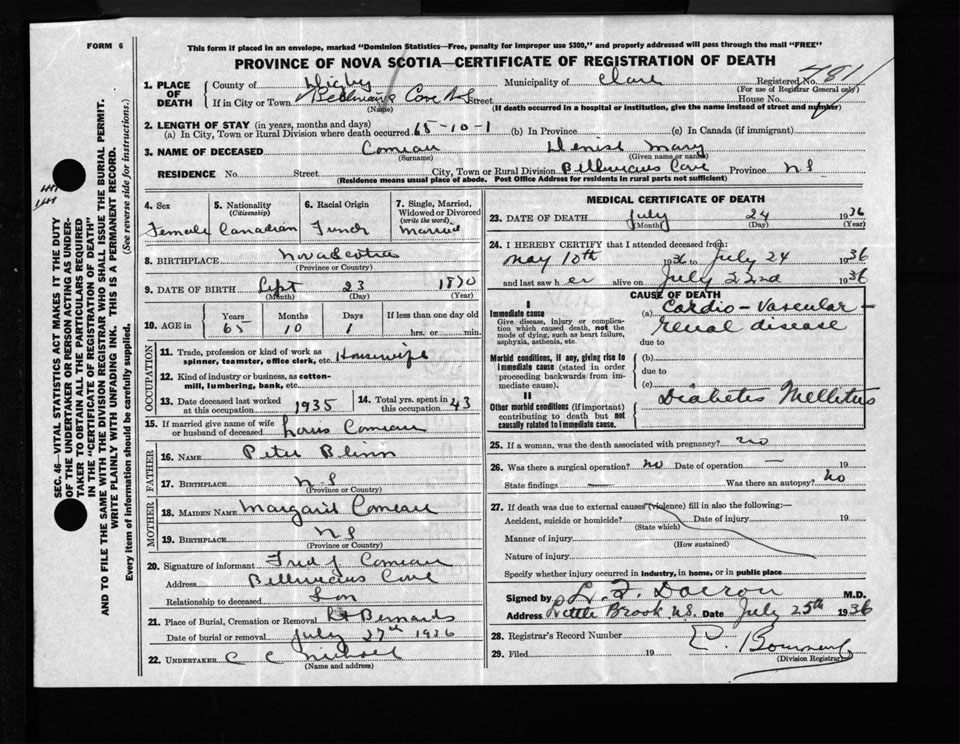 FORM 6
This form if placed in an envelope, marked "Dominion Statistics—Free, penalty for improper use $300," and properly addressed will pass through the mail "FREE"
PROVINCE OF NOVA SCOTIA—CERTIFICATE OF REGISTRATION OF DEATH
1. PLACE OF DEATH
County of Digby Municipality of Clare Registered No. 4811
(For use of Registrar General only)
If in City or Town Cove N S Street House No.
(Name) (If death occurred in a hospital or institution, give the name instead of street and number)
2. LENGTH OF STAY (in years, months and days)
(a) In City, Town or Rural Division where death occurred 65-10-1 (b) In Province (c) In Canada (if immigrant)
3. NAME OF DECEASED Comeau Denise Mary
(Surname) (Given name or names)
RESIDENCE No Street City, Town or Rural Division Cove Province N S
(Residence means usual place of abode. Post Office Address for residents in rural parts not sufficient)
4. Sex
Female
5. Nationality
(Citizenship)
Canadian
6. Racial Origin
French
7. Single, Married, Widowed or Divorced
(write the word)
Married
8. BIRTHPLACE Nova Scotia
(Province or Country)
9. DATE OF BIRTH Sept 23 1870
(Month) (Day) (Year)
10. AGE in
Years Months Days If less than one day old
65 10 1 hrs. or min.
OCCUPATION
11. Trade, profession or kind of work as spinner, teamster, office clerk, etc. Housewife
12. Kind of industry or business, as cotton-mill, lumbering, bank, etc.
13. Date deceased last worked at this occupation 1935
14. Total yrs. spent in this occupation 43
15. If married give name of wife or husband of deceased Louis Comeau
FATHER
16. NAME Peter Blinn
17. BIRTHPLACE N S
(Province or Country)
MOTHER
18. MAIDEN NAME Margaret Comeau
19. BIRTHPLACE N S
(Province or Country)
20. Signature of informant Fred J Comeau
Address Cove
Relationship to deceased Son
21. Place of Burial, Cremation or Removal St Bernards
Date of burial or removal July 27th 1936
22. UNDERTAKER C C
(Name and address)
MEDICAL CERTIFICATE OF DEATH
23. DATE OF DEATH July 24 1936
(Month) (Day) (Year)
24. I HEREBY CERTIFY that I attended deceased from:
May 10th 1936 to July 24 1936
and last saw her alive on July 22nd 1936
CAUSE OF DEATH
I
Immediate cause
Give disease, injury or complication which caused death, not the mode of dying, such as heart failure, asphyxia, asthenia, etc.
(a) Cardio-vascular-renal disease
due to
Morbid conditions, if any, giving rise to immediate cause (stated in order proceeding backwards from immediate cause).
(b)
due to
(c)
II
Other morbid conditions (if important) contributing to death but not causally related to immediate cause.
Diabetes Mellitus
25. If a woman, was the death associated with pregnancy? no
26. Was there a surgical operation? no Date of operation — 19
State findings — Was there an autopsy? no
27. If death was due to external causes (violence) fill in also the following:—
Accident, suicide or homicide? Date of injury 19
(State which)
Manner of injury
(How sustained)
Nature of injury
Specify whether injury occurred in industry, in home, or in public place
Signed by Doiron M.D.
Address Little Brook N.S. Date July 25th 1936
28. Registrar's Record Number
29. Filed 19
(Division Registrar)
SEC. 46—VITAL STATISTICS ACT MAKES IT THE DUTY
OF THE UNDERTAKER OR PERSON ACTING AS UNDER-
TAKER TO OBTAIN ALL THE PARTICULARS REQUIRED
IN THE "CERTIFICATE OF REGISTRATION OF DEATH"
AND TO FILE THE SAME WITH THE DIVISION REGISTRAR WHO SHALL ISSUE THE BURIAL PERMIT.
WRITE PLAINLY WITH UNFADING INK. THIS IS A PERMANENT RECORD.
Every item of information should be carefully supplied. (See reverse side for instructions.)